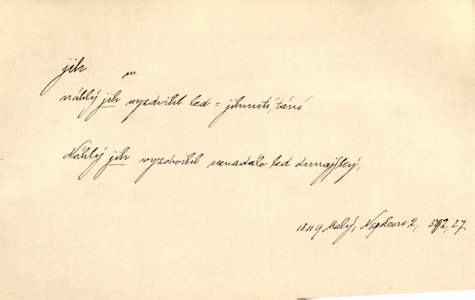 jih m.
náhlý jih vyzdvihl led = jihnutí, tání
Náhlý jih vyzdvihl nenadále led dunajský,
1849 Malý, Napoleon 2, 392, 27.